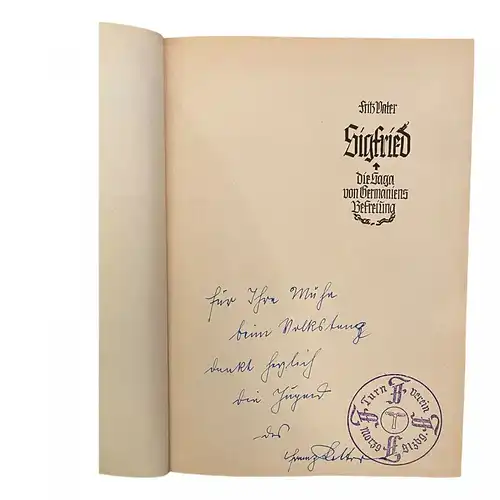 Fritz Vater
Sigfried
die Saga
von Germaniens
Befreiung
für Ihre Mühe
beim Volkstanz
dankt herzlich
die Jugend
des
Turn verein